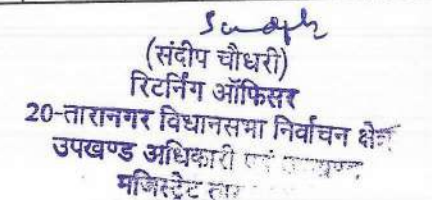 (संदीप चौधरी)
रिटर्निंग ऑफिसर
20-तारानगर विधानसभा निर्वाचन क्षेत्र
उपखण्ड अधिकारी एवं
मजिस्ट्रेट